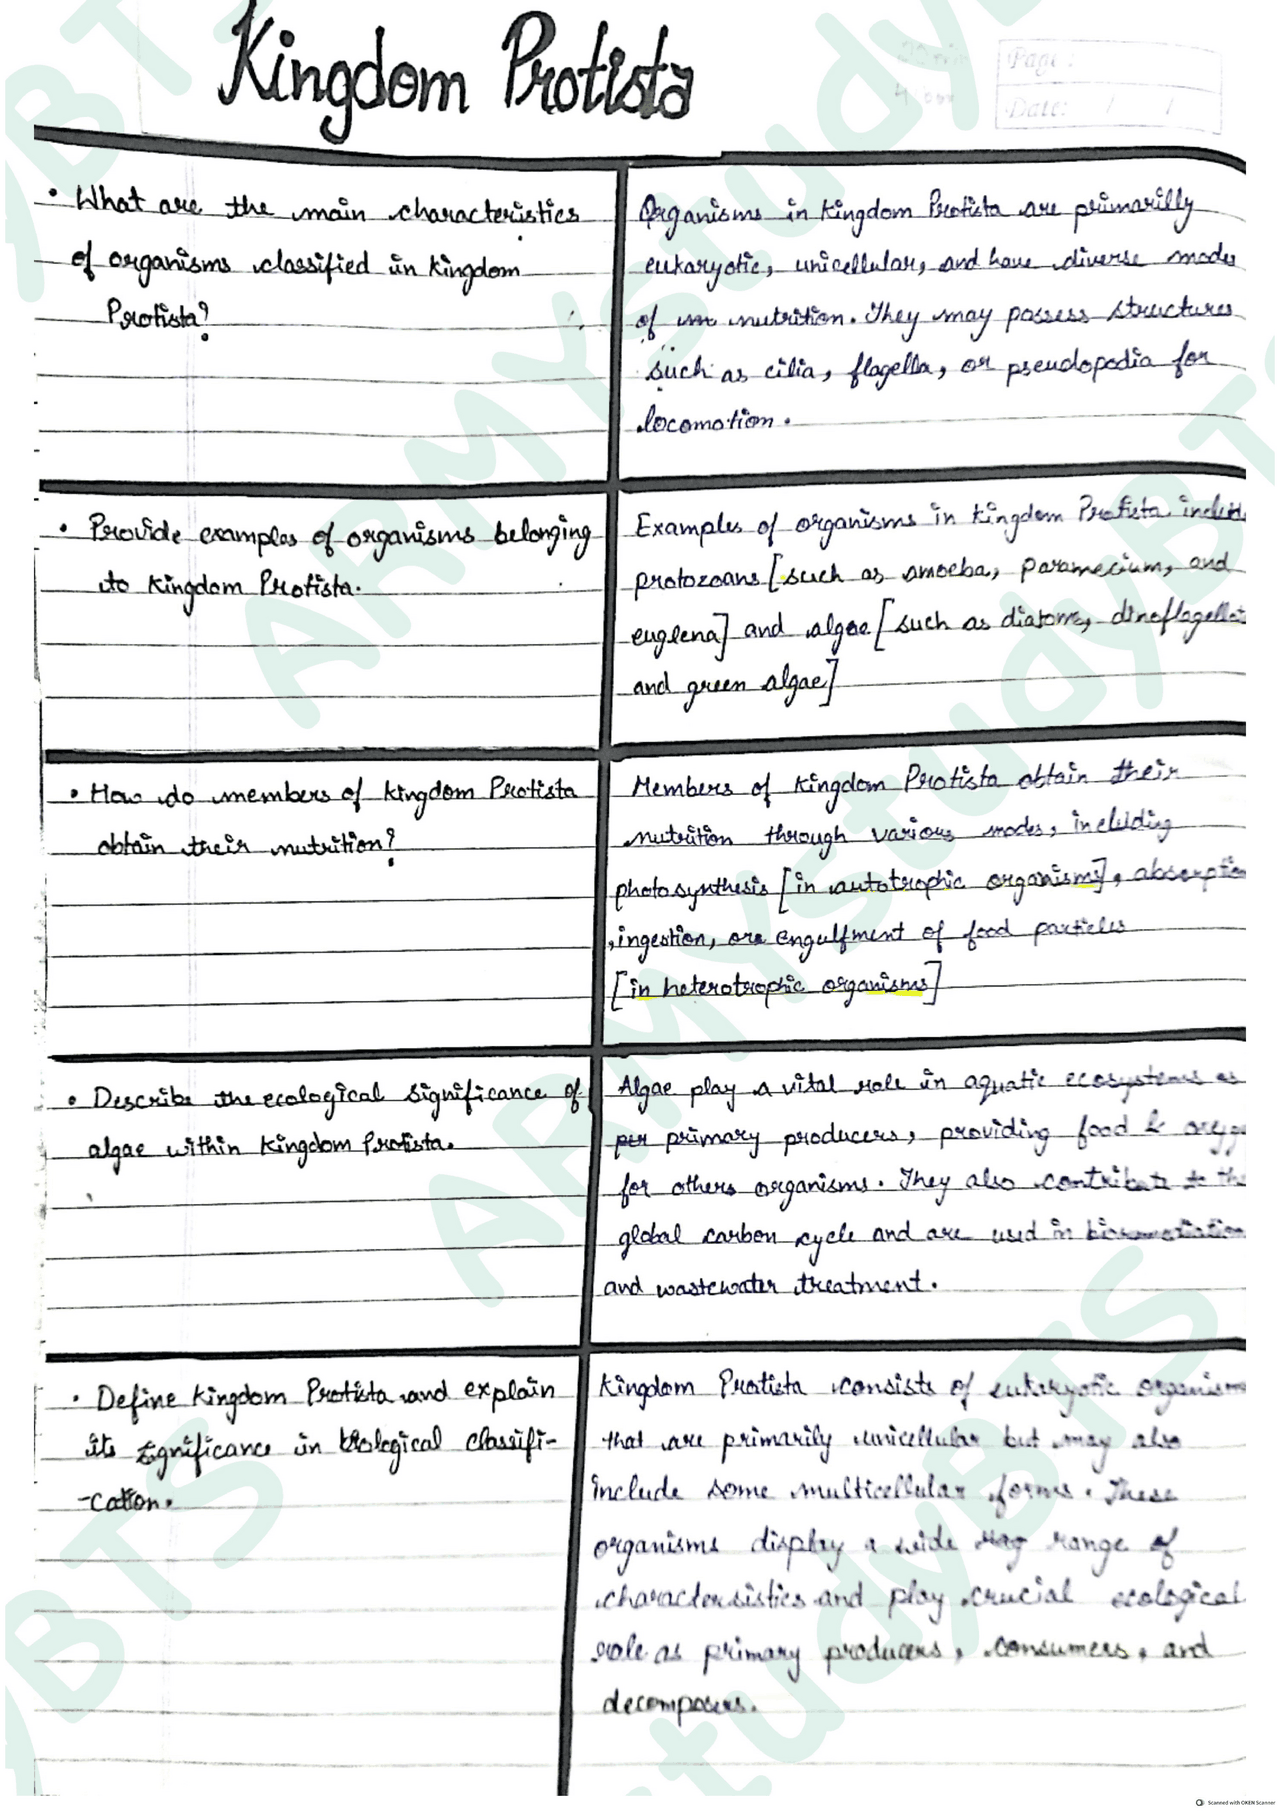 Kingdom Protista
Page :
Date: / /
• What are the main characteristics
of organisms classified in kingdom
Protista?
Organisms in kingdom Protista are primarilly
eukaryotic, unicellular, and have diverse modes
of nutrition. They may possess structures
such as cilia, flagella, or pseudopodia for
locomotion.
• Provide examples of organisms belonging
to kingdom Protista.
Examples of organisms in kingdom Protista includ
protozoans [such as amoeba, paramecium, and
euglena] and algae [such as diatoms, dinoflagellat
and green algae]
• How do members of kingdom Protista
obtain their nutrition?
Members of kingdom Protista obtain their
nutrition through various modes, including
photosynthesis [in autotrophic organisms], absorption
, ingestion, or engulfment of food particles
[in heterotrophic organisms]
• Describe the ecological significance of
algae within kingdom Protista.
Algae play a vital role in aquatic ecosystems as
primary producers, providing food & oxyg
for others organisms. They also contribute to the
global carbon cycle and are used in bioremediation
and wastewater treatment.
• Define kingdom Protista and explain
its significance in biological classifi-
-cation.
Kingdom Protista consists of eukaryotic organism
that are primarily unicellular but may also
include some multicellular forms. These
organisms display a wide range of
characteristics and play crucial ecological
role as primary producers, consumers, and
decomposers.
ARMYstudyBTS
ARMYstudyBTS
Scanned with OKEN Scanner